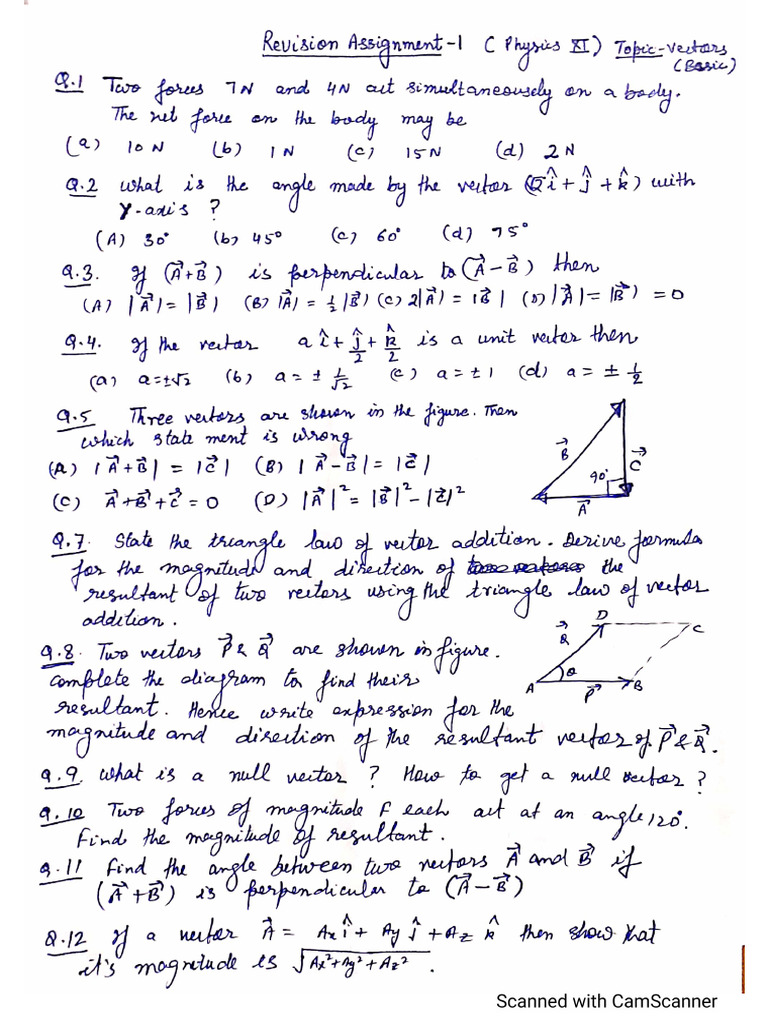 Revision Assignment-1 ( Physics XI) Topic-Vectors
(Basic)
Q.1 Two forces 7N and 4N act simultaneousely on a body.
The net force on the body may be
(a) 10 N (b) 1 N (c) 15 N (d) 2 N
Q.2 what is the angle made by the vector (√2 î + ĵ + k̂) with
Y-axis ?
(A) 30° (b) 45° (c) 60° (d) 75°
Q.3. If (A⃗+B⃗) is perpendicular to (A⃗-B⃗) then
(A) |A⃗|=|B⃗| (B) |A⃗|=½|B⃗| (c) 2|A⃗|=|B⃗| (D) |A⃗|=|B⃗|=0
Q.4. If the vector a î + ĵ/2 + k̂/2 is a unit vector then
(a) a=±√2 (b) a=± 1/√2 (c) a=±1 (d) a=± 1/2
Q.5 Three vectors are shown in the figure. Then
which state ment is wrong
(A) |A⃗+B⃗| = |C⃗| (B) |A⃗-B⃗| = |C⃗|
(C) A⃗+B⃗+C⃗ = 0 (D) |A⃗|² = |B⃗|²-|C⃗|²
B⃗
C⃗
90°
A⃗
Q.7. State the triangle law of vector addition. Derive formula
for the magnitude and direction of the
resultant of two vectors using the triangle law of vector
addition.
Q.8. Two vectors P⃗ & Q⃗ are shown in figure.
complete the diagram to find their
resultant. Hence write expression for the
magnitude and direction of the resultant vector of P⃗ & Q⃗.
D
C
Q⃗
θ
A
P⃗
B
Q.9 What is a null vector ? How to get a null vector ?
Q.10 Two forces of magnitude F each act at an angle 120°.
Find the magnitude of resultant.
Q.11 Find the angle between two vectors A⃗ and B⃗ if
(A⃗+B⃗) is perpendicular to (A⃗-B⃗)
Q.12 If a vector A⃗ = Ax î + Ay ĵ + Az k̂ then show that
it's magnitude is √(Ax²+Ay²+Az²).
Scanned with CamScanner